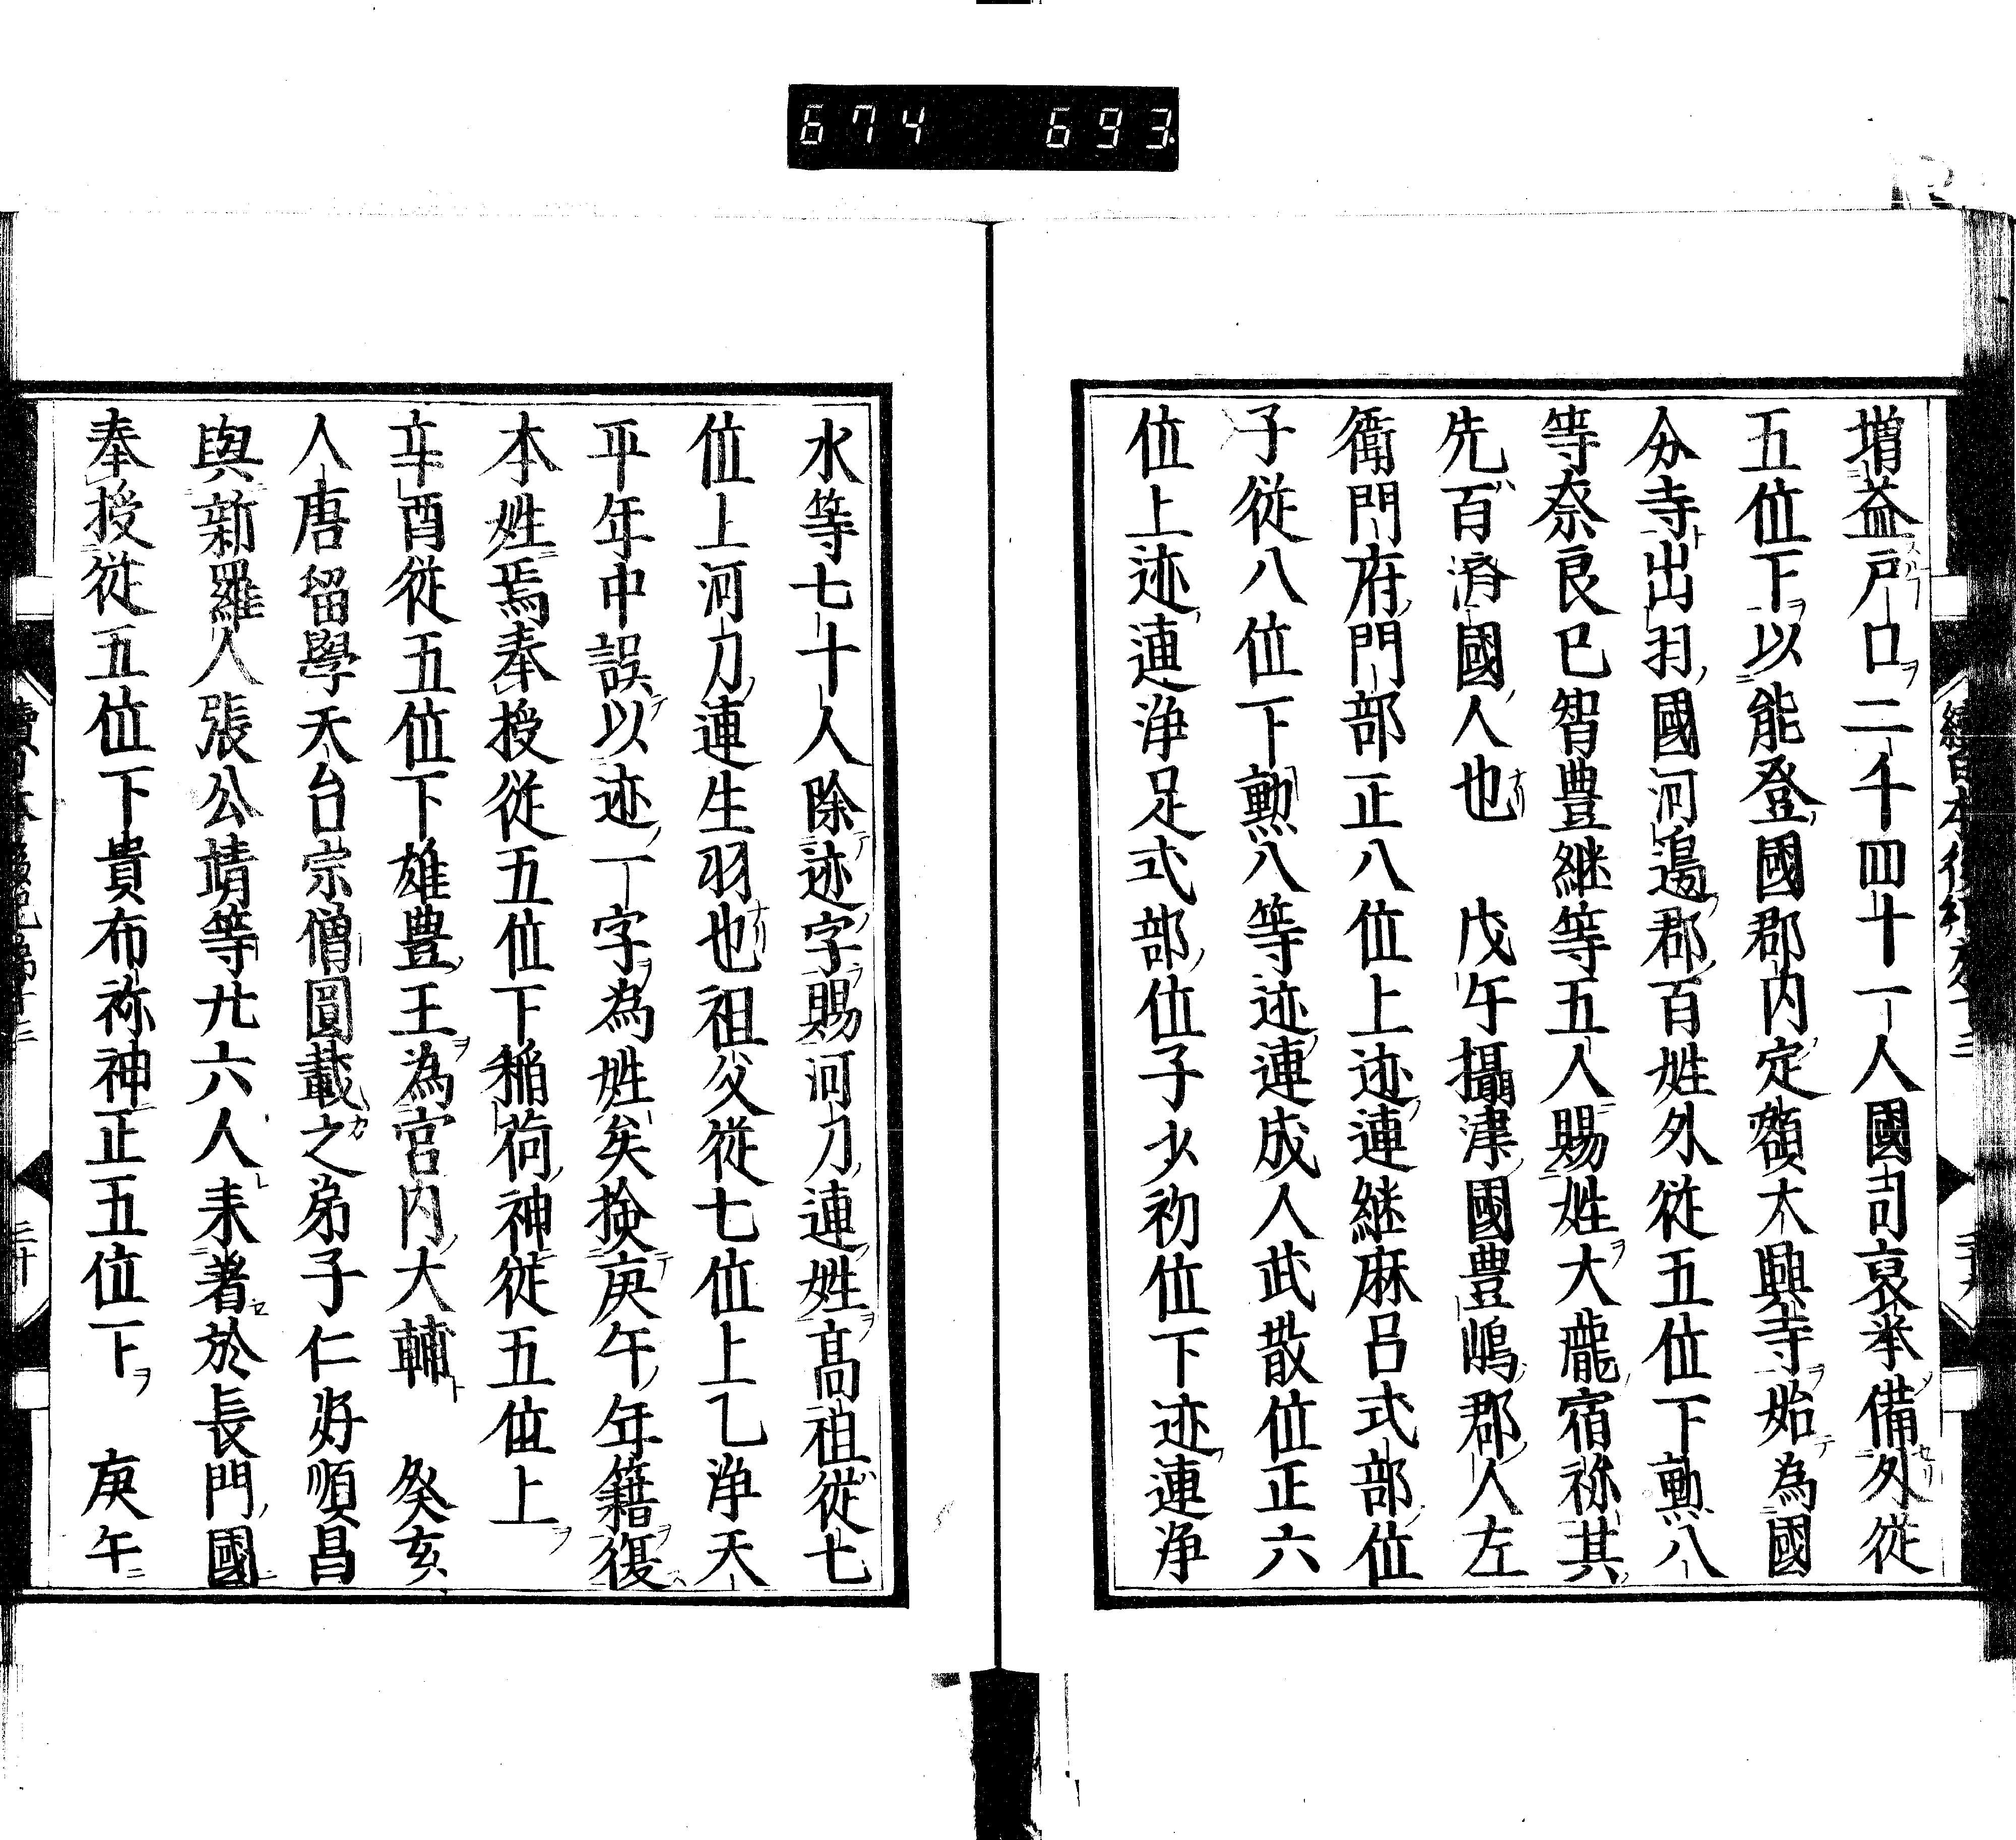 674 693
増益戸口二千四十一人國司裒挙備外従
五位下以能登國郡内定額大興寺始為國
分寺出羽國河邉郡百姓外従五位下勲八
等奈良己智豊継等五人賜姓大瀧宿祢其
先百済國人也 戊午攝津國豊嶋郡人左
衛門府門部正八位上迹連継麻呂式部位
子従八位下勲八等迹連成人武散位正六
位上迹連浄足式部位子少初位下迹連浄
水等七十人除迹字賜河刀連姓髙祖従七
位上河刀連生羽也祖父従七位上乙浄天
平年中誤以迹一字為姓矣検庚午年籍復
本姓焉奉授従五位下稲荷神従五位上
辛酉従五位下雄豊王為宮内大輔 癸亥
人唐留學天台宗僧圓載之弟子仁好順昌
與新羅人張公靖等廿六人来著於長門國
奉授従五位下貴布祢神正五位下 庚午